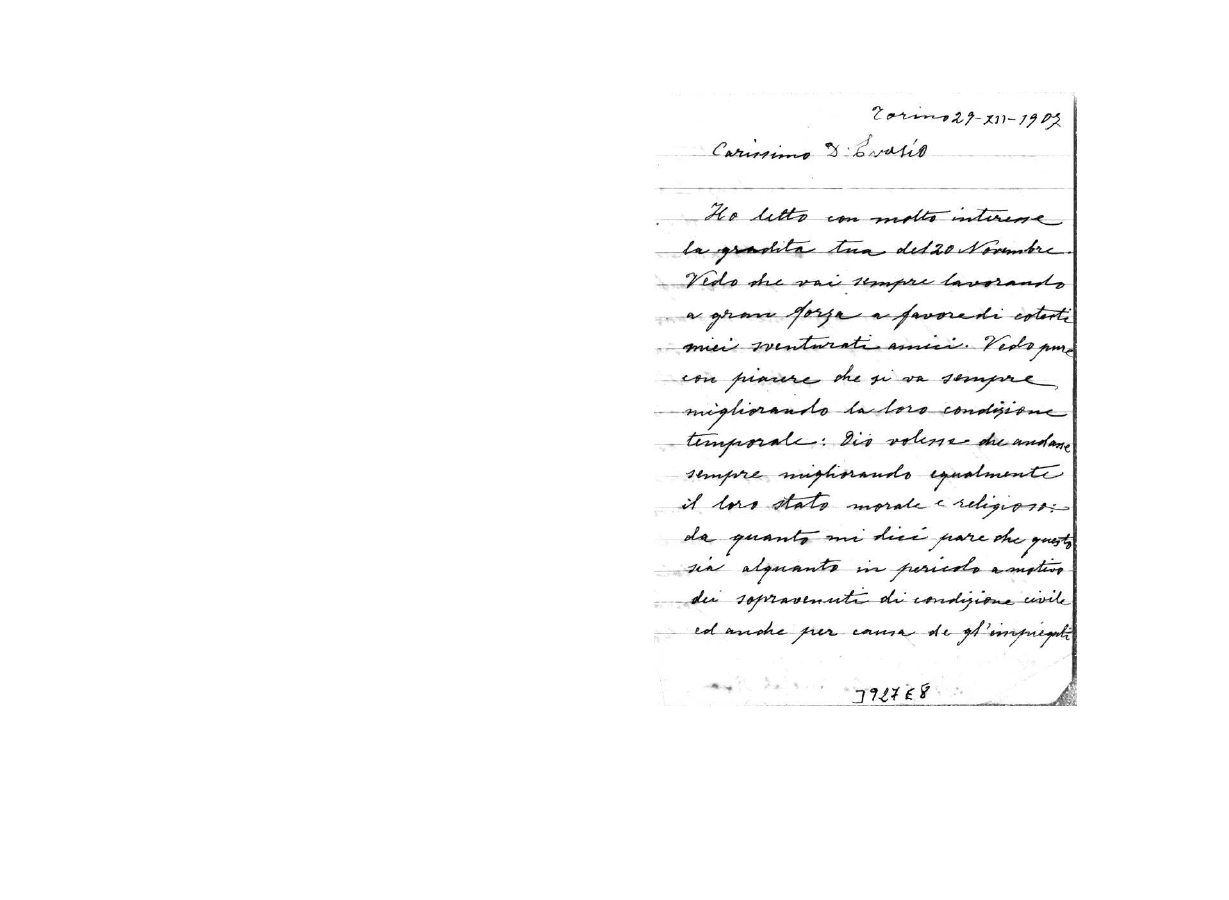 Torino 29-XII-1907
Carissimo D. Evasio
Ho letto con molto interesse
la gradita tua del 20 Novembre.
Vedo che vai sempre lavorando
a gran forza a favore di cotesti
miei sventurati amici. Vedo pure
con piacere che si va sempre
migliorando la loro condizione
temporale: Dio volesse che andasse
sempre migliorando egualmente
il loro stato morale e religioso:
da quanto mi dici pare che questo
sia alquanto in pericolo a motivo
dei sopravenuti di condizione civile
ed anche per causa de gl'impiegati